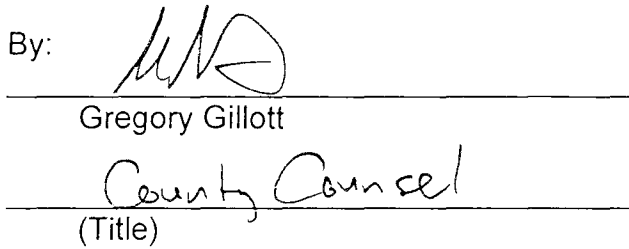 By:
Gregory Gillott
County Counsel
(Title)